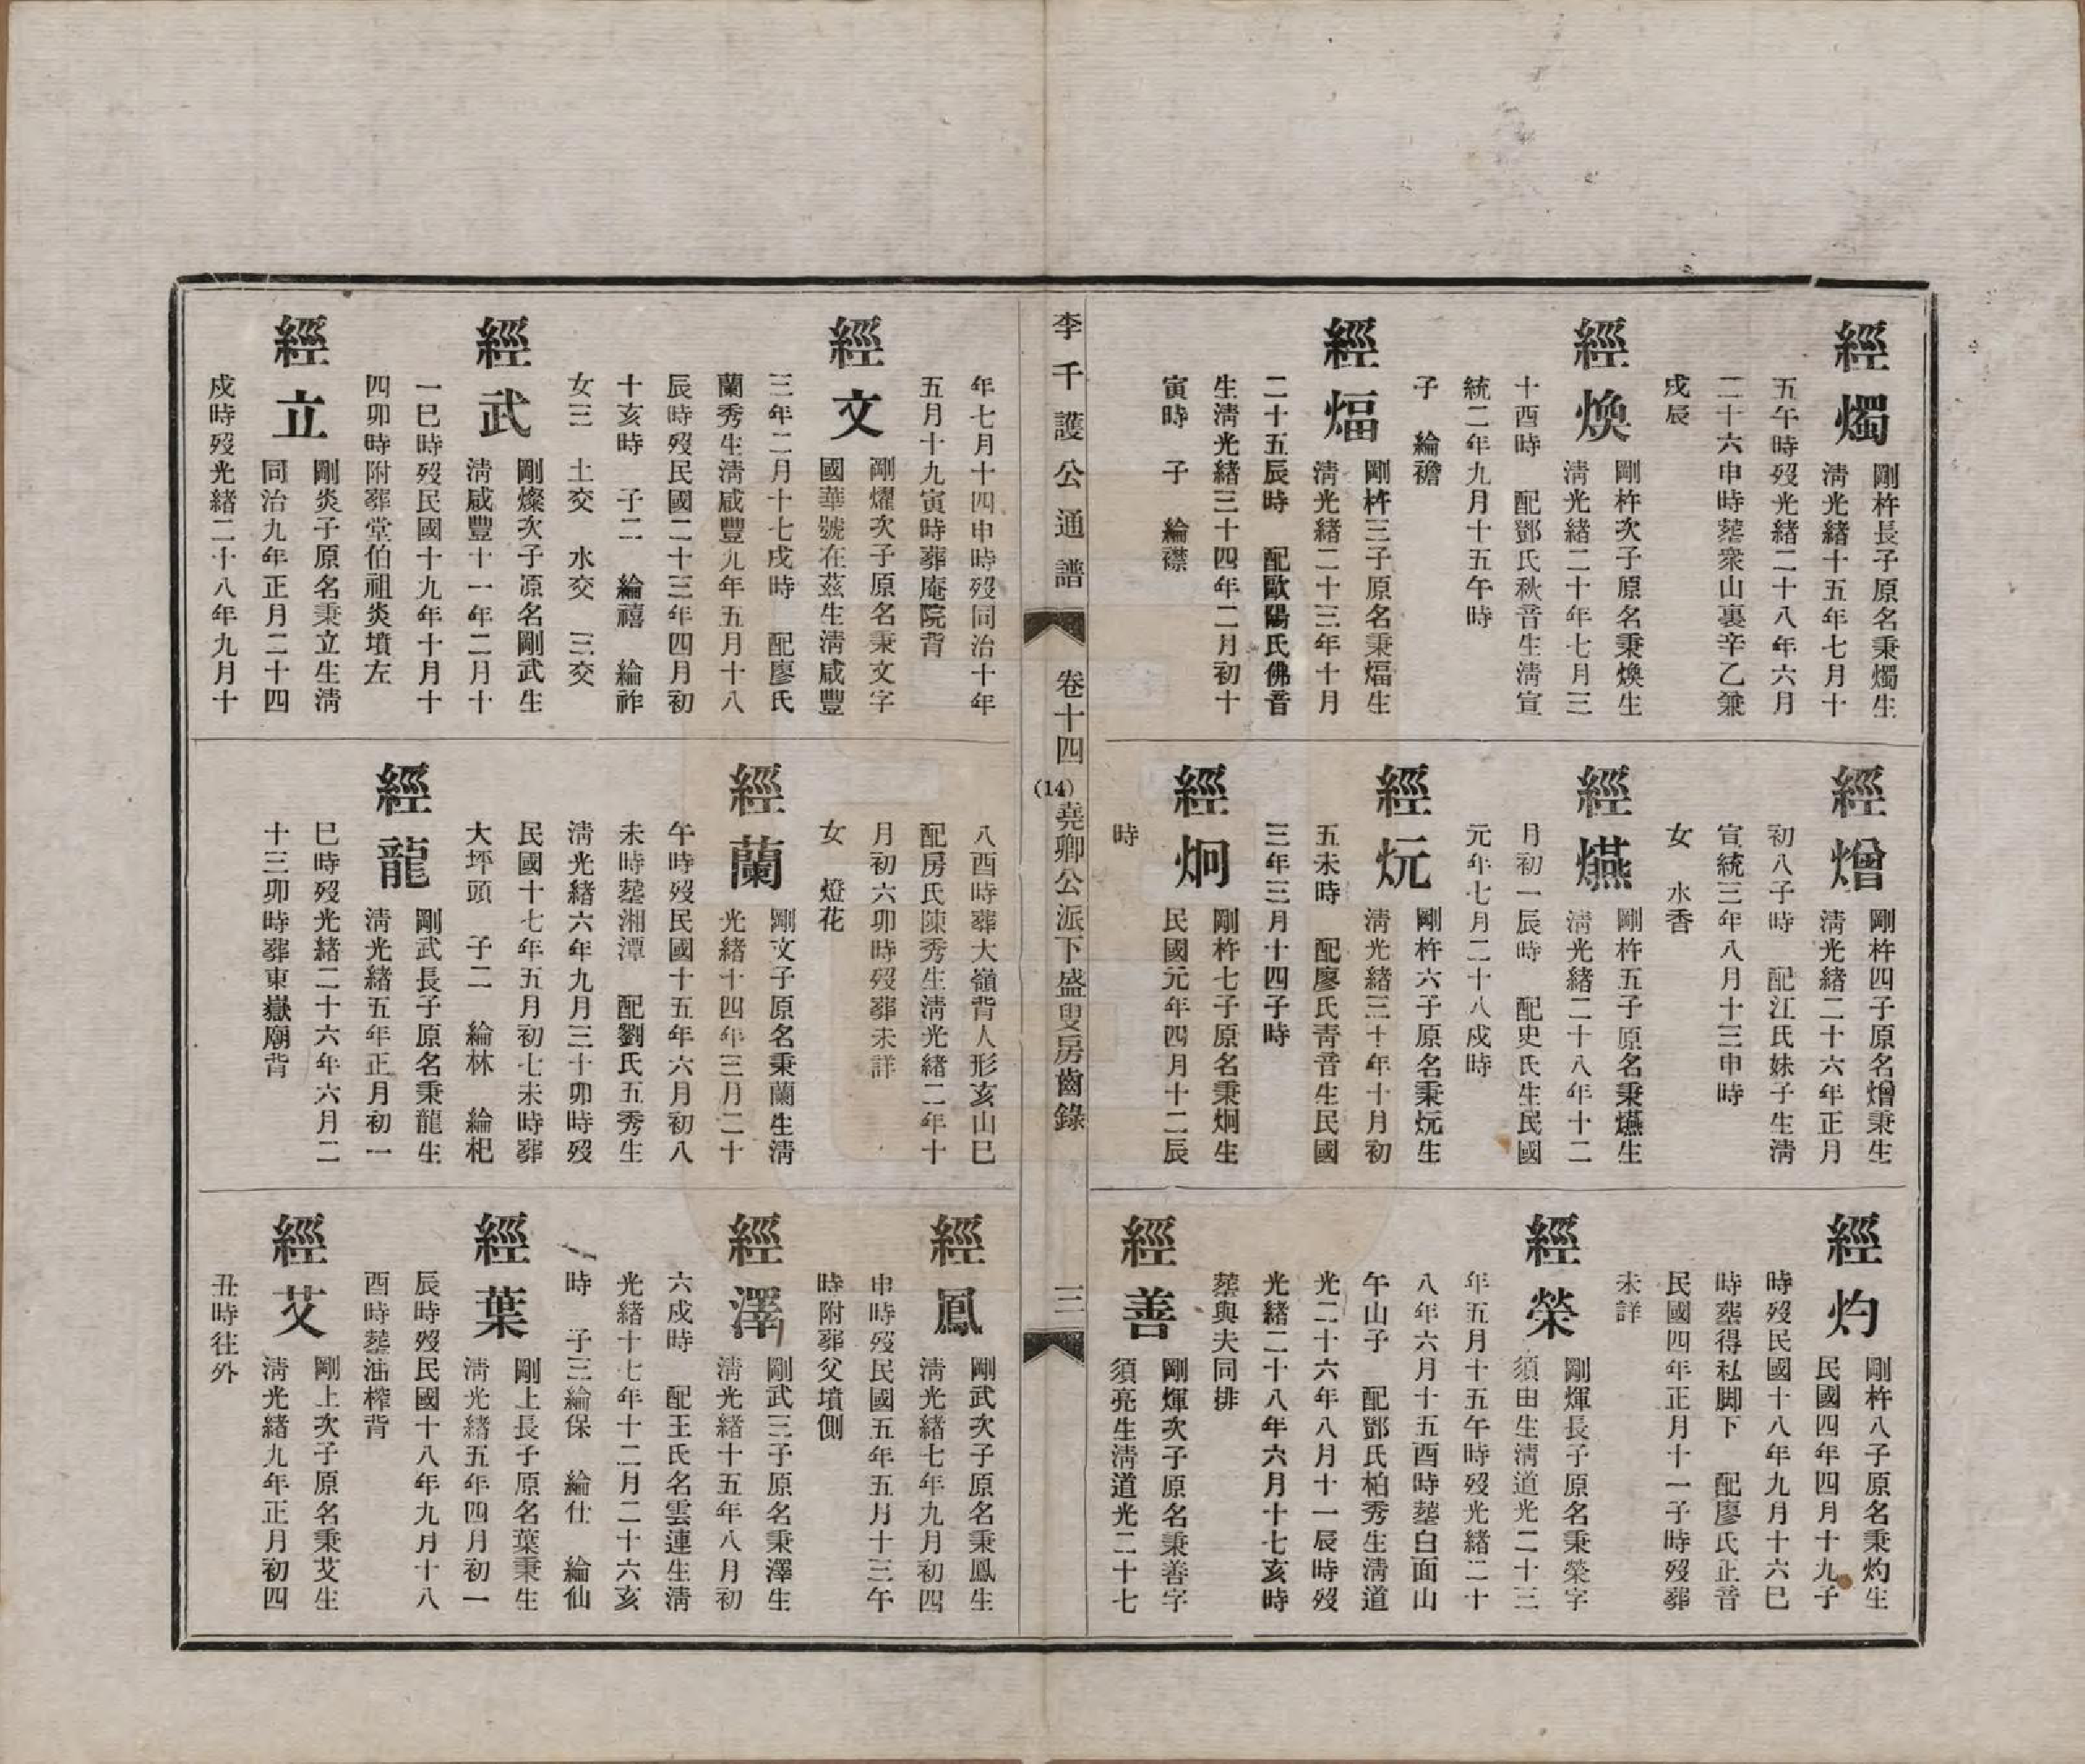 經燭
剛杵長子原名秉燭生
淸光緒十五年七月十
五午時歿光緒二十八年六月
二十六申時塟衆山裏辛乙兼
戌辰
經煥
剛杵次子原名秉煥生
淸光緒二十年七月三
十酉時 配鄧氏秋音生淸宣
統二年九月十五午時
子 綸襜
經煏
剛杵三子原名秉煏生
淸光緒二十三年十月
二十五辰時 配歐陽氏佛音
生淸光緒三十四年二月初十
寅時 子 綸襟
經熷
剛杵四子原名熷秉生
淸光緒二十六年正月
初八子時 配江氏妹子生淸
宣統三年八月十三申時
女 水香
經㷼
剛杵五子原名秉㷼生
淸光緒二十八年十二
月初一辰時 配史氏生民國
元年七月二十八戌時
經炕
剛杵六子原名秉炕生
淸光緒三十年十月初
五未時 配廖氏靑音生民國
三年三月十四子時
經炯
剛杵七子原名秉炯生
民國元年四月十二辰
時
經灼
剛杵八子原名秉灼生
民國四年四月十九子
時歿民國十八年九月十六巳
時塟得私脚下 配廖氏正音
民國四年正月十一子時歿葬
未詳
經榮
剛煇長子原名秉榮字
須由生淸道光二十三
年五月十五午時歿光緒二十
八年六月十五酉時塟白面山
午山子 配鄧氏柏秀生淸道
光二十六年八月十一辰時歿
光緒二十八年六月十七亥時
塟與夫同排
經善
剛煇次子原名秉善字
須亮生淸道光二十七
李千護公通譜
卷十四
(14)
堯卿公派下盛叟房齒錄
三
年七月十四申時歿同治十年
五月十九寅時葬庵院背
經文
剛燿次子原名秉文字
國華號在茲生淸咸豐
三年二月十七戌時 配廖氏
蘭秀生淸咸豐九年五月十八
辰時歿民國二十三年四月初
十亥時 子二 綸禧 綸祚
女三 土交 水交 三交
經武
剛燦次子原名剛武生
淸咸豐十一年二月十
一巳時歿民國十九年十月十
四卯時附葬堂伯祖炎墳左
經立
剛炎子原名秉立生淸
同治九年正月二十四
戌時歿光緒二十八年九月十
八酉時葬大嶺背人形亥山巳
配房氏陳秀生淸光緒二年十
月初六卯時歿葬未詳
女 燈花
經蘭
剛文子原名秉蘭生淸
光緒十四年三月二十
午時歿民國十五年六月初八
未時塟湘潭 配劉氏五秀生
淸光緒六年九月三十卯時歿
民國十七年五月初七未時葬
大坪頭 子二 綸林 綸杞
經龍
剛武長子原名秉龍生
淸光緒五年正月初一
巳時歿光緒二十六年六月二
十三卯時葬東嶽廟背
經鳳
剛武次子原名秉鳳生
淸光緒七年九月初四
申時歿民國五年五月十三午
時附葬父墳側
經澤
剛武三子原名秉澤生
淸光緒十五年八月初
六戌時 配王氏名雲連生淸
光緒十七年十二月二十六亥
時 子三綸保 綸仕 綸仙
經葉
剛上長子原名葉秉生
淸光緒五年四月初一
辰時歿民國十八年九月十八
酉時塟油榨背
經艾
剛上次子原名秉艾生
淸光緒九年正月初四
丑時往外